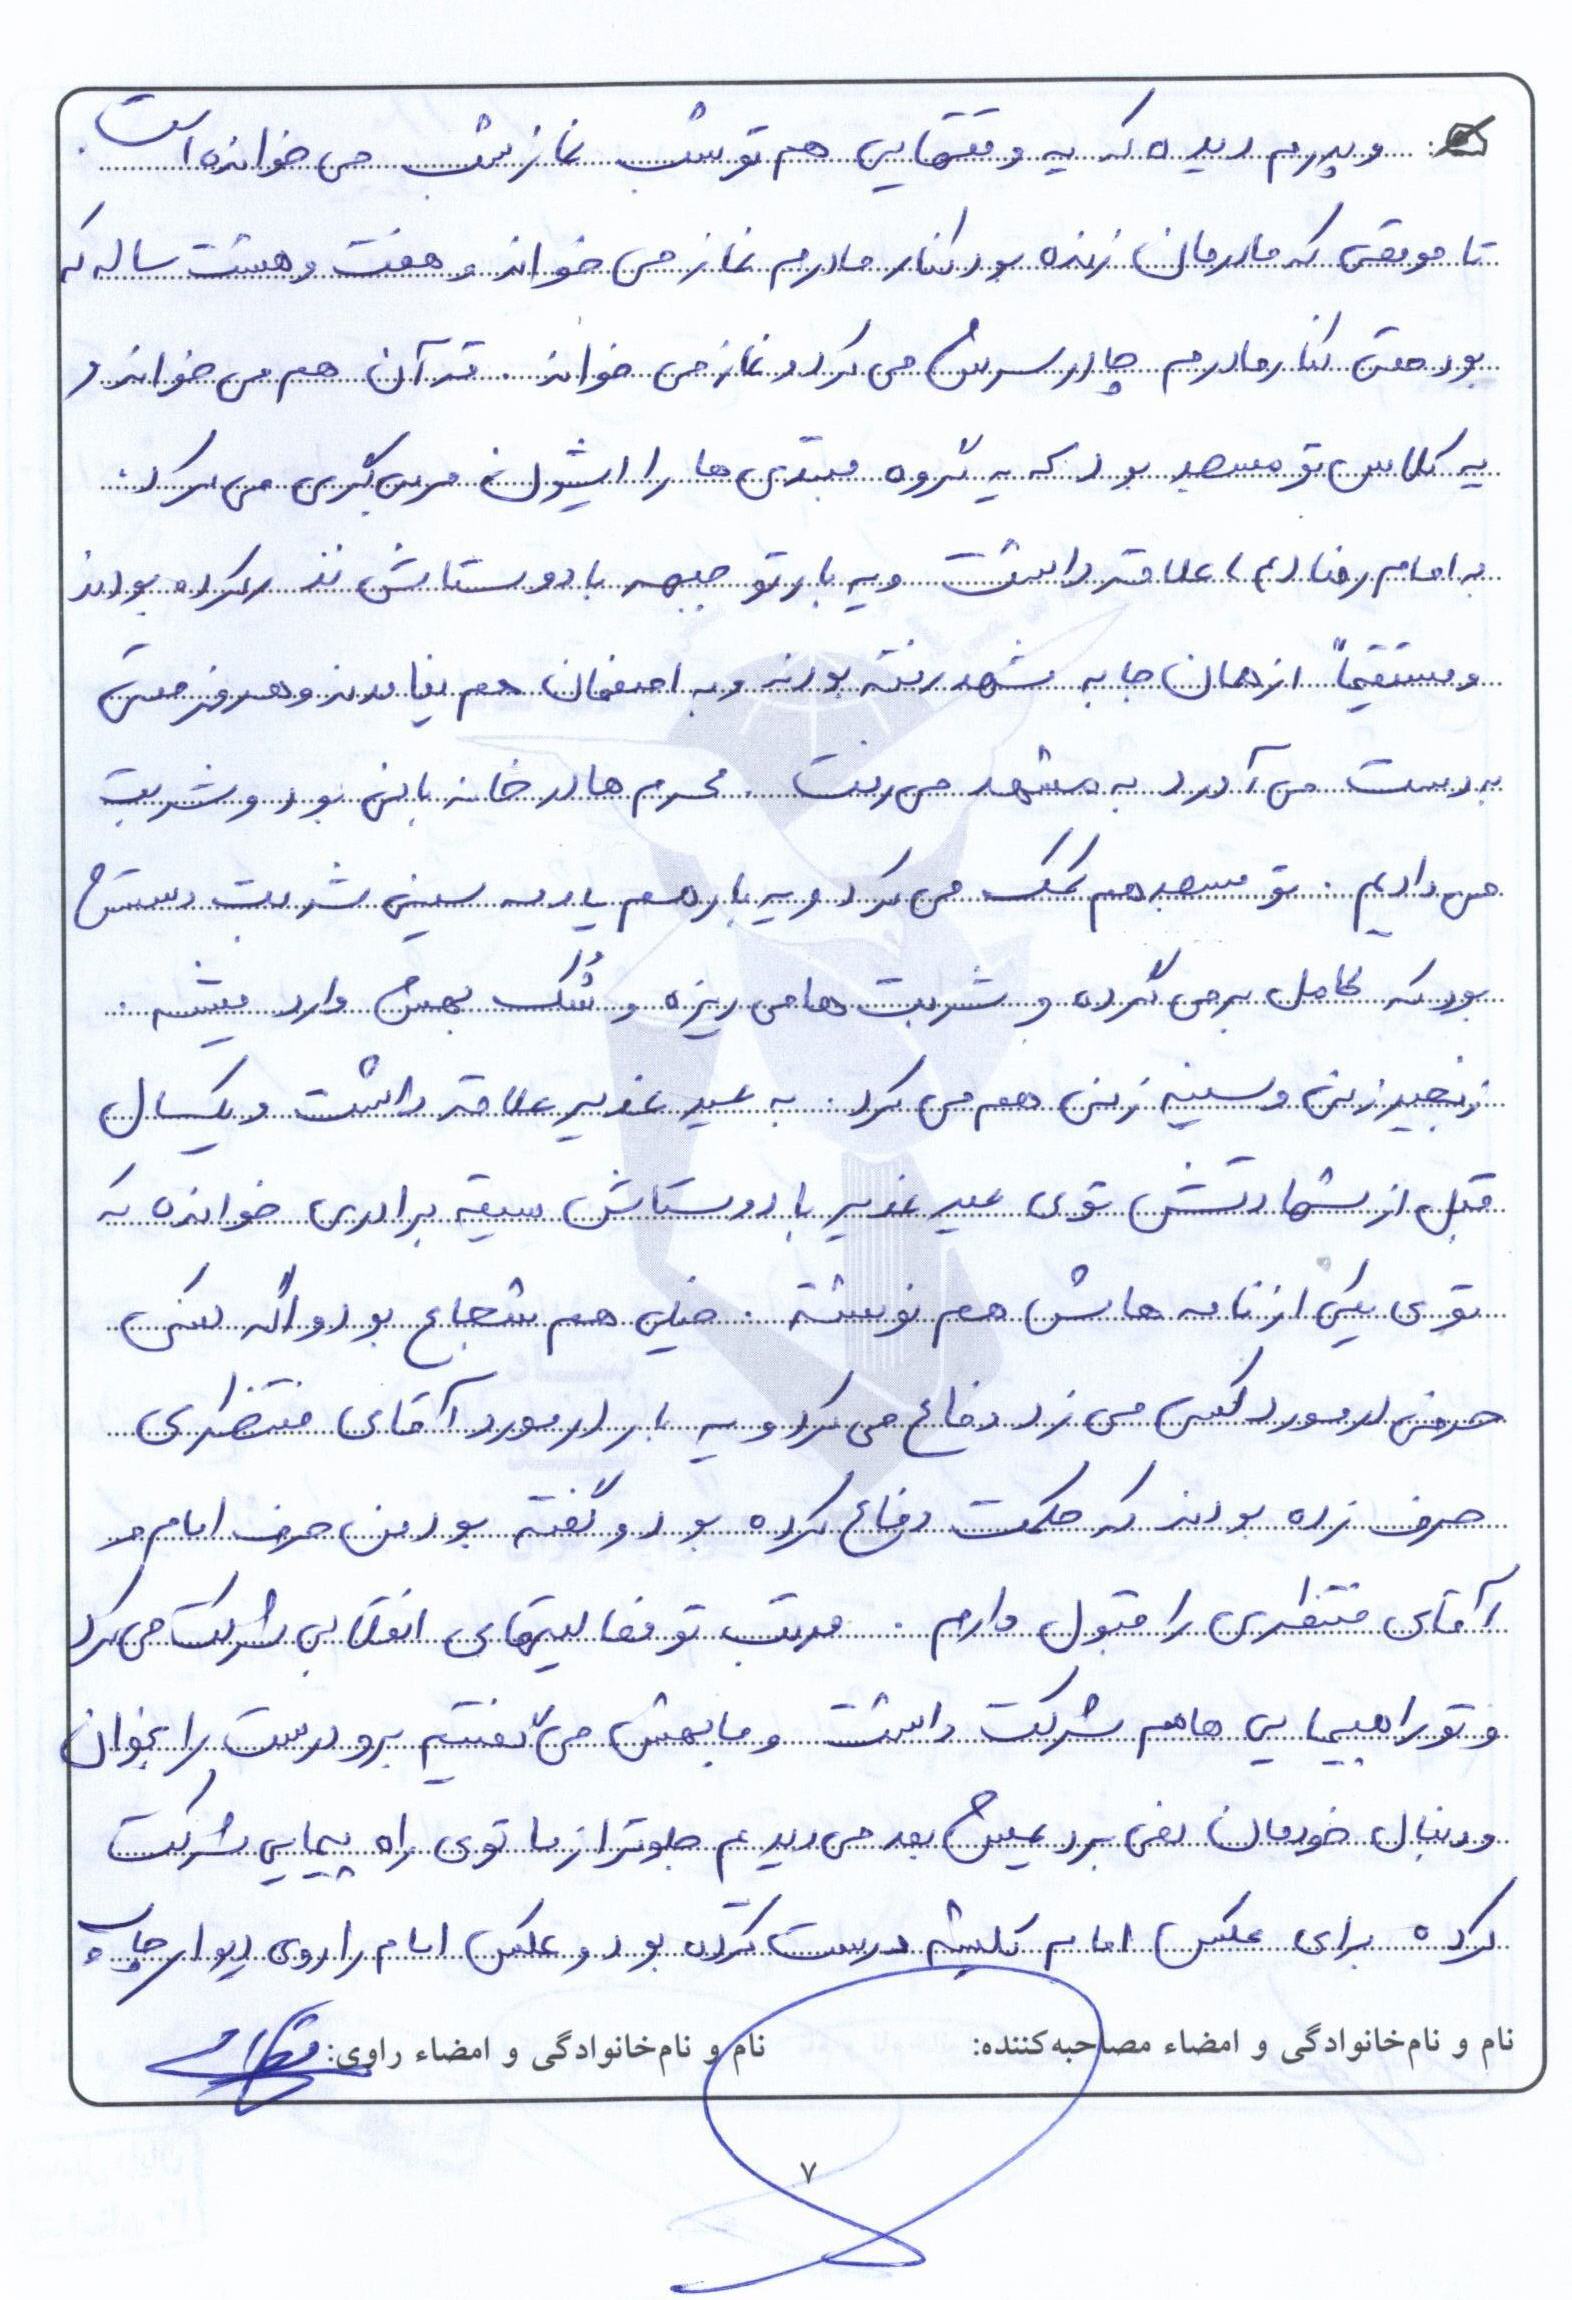 و پدرم دیده که یه وقتهایی هم تو شب نماز شب می خوانده است.
تا موقعی که مادرمان زنده بود کنار مادرم نماز می خواند و هفت و هشت ساله که
بود حتی کنار مادرم چادر سرش می کرد و نماز می خواند . قرآن هم می خواند و
یه کلاس تو مسجد بود که یه گروه مبتدی ها را ایشون مربی گری می کرد .
به امام رضا (ع) علاقه داشت و یه بار تو جبهه با دوستاش نذر کرده بودند
و مستقیماً از همان جا به مشهد رفته بودند و به اصفهان هم نیامدند و هر فرصتی
به دست می آورد به مشهد می رفت . محرم ها در خانه بانی بود و شربت
می دادیم . تو مسجد هم کمک می کرد و یه بار هم یادمه سینی شربت دستش
بود که کامل برمی گرده و شربت ها می ریزه و شُک بهش وارد میشه .
زنجیر زنی و سینه زنی هم می کرد . به عید غدیر علاقه داشت و یکسال
قبل از شهادتش توی عید غدیر با دوستاش سیقه برادری خوانده که
توی یکی از نامه هاش هم نوشته . خیلی هم شجاع بود و اگه کسی
حرفی در مورد کسی می زد دفاع می کرد و یه بار در مورد آقای منتظری
حرف زده بودند که حکمت دفاع کرده بود و گفته بود من حرف امام و
آقای منتظری را قبول دارم . مرتب تو فعالیتهای انقلابی شرکت می کرد
و تو راهپیمایی ها هم شرکت داشت و ما بهش می گفتیم برو درست را بخوان
و دنبال خودمان نمی بردیمش بعد می دیدیم جلوتر از ما توی راه پیمایی شرکت
کرده برای عکس امام کلیشه درست کرده بود و عکس امام را روی دیوار چاپ
نام و نام‌خانوادگی و امضاء مصاحبه‌کننده: نام و نام‌خانوادگی و امضاء راوی:
۷